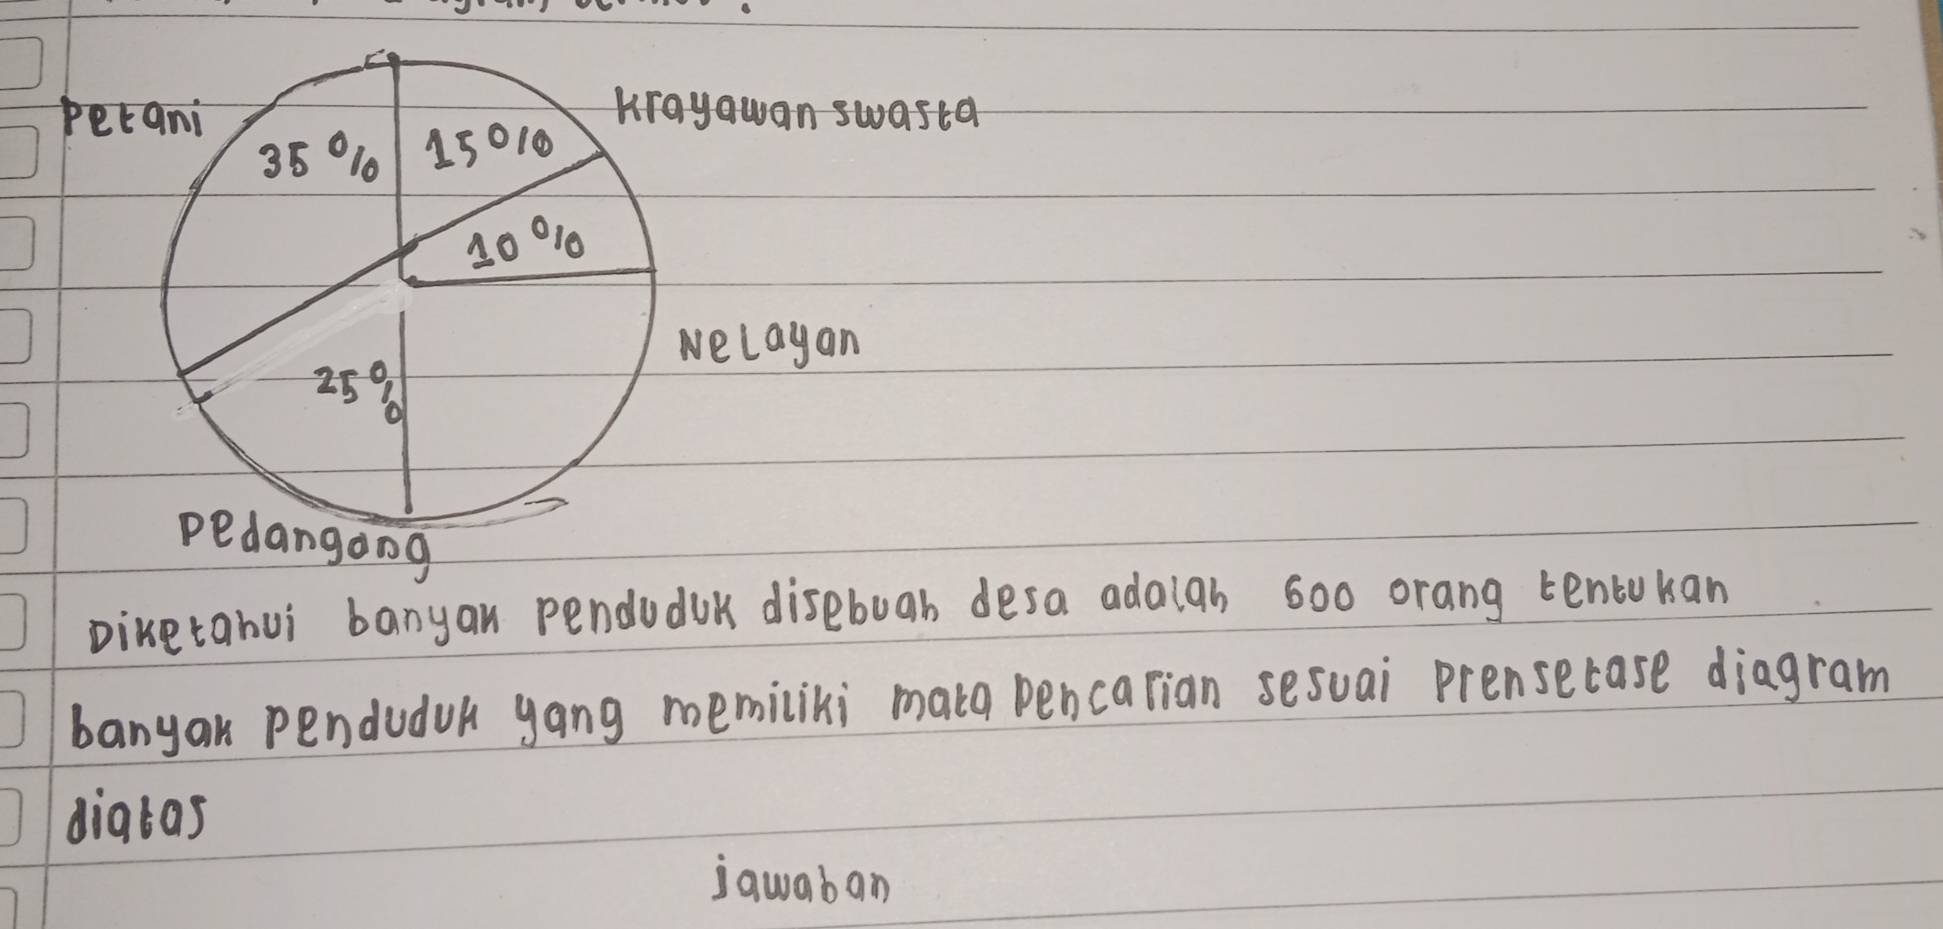 Petani
Krayawan swasta
35 %
15 %
10 %
Nelayan
25 %
Pedangang
Diketahui banyak penduduk disebuah desa adalah 600 orang tentukan
banyak penduduk yang memiliki mata pencarian sesuai prensetase diagram
diatas
jawaban